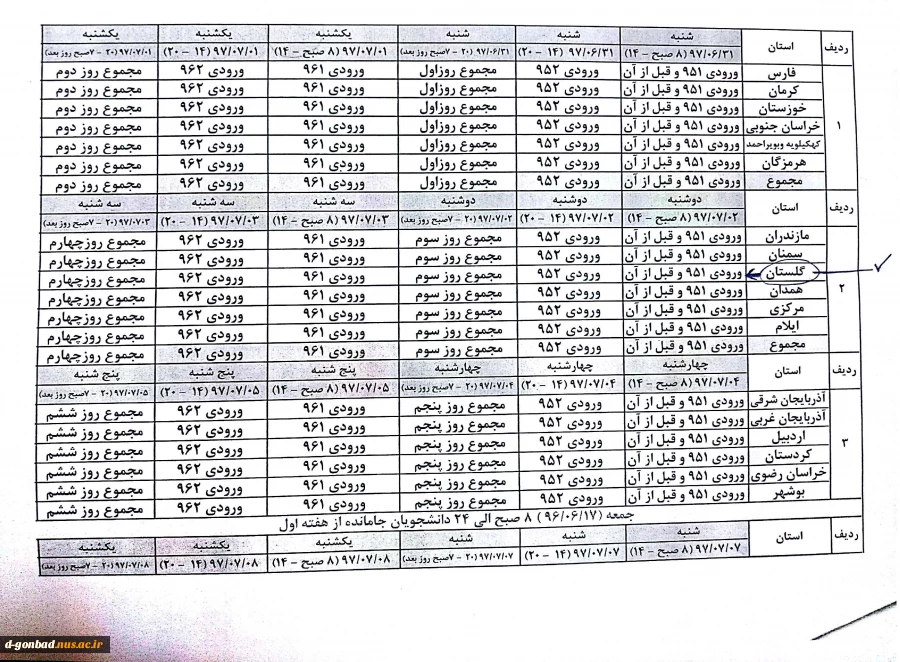 ردیف استان شنبه شنبه شنبه یکشنبه یکشنبه یکشنبه
۹۷/۰۶/۳۱ (۸ صبح - ۱۴) ۹۷/۰۶/۳۱ (۱۴ - ۲۰) ۹۷/۰۶/۳۱ (۲۰ - ۷صبح روز بعد) ۹۷/۰۷/۰۱ (۸ صبح - ۱۴) ۹۷/۰۷/۰۱ (۱۴ - ۲۰) ۹۷/۰۷/۰۱ (۲۰ - ۷صبح روز بعد)
فارس ورودی ۹۵۱ و قبل از آن ورودی ۹۵۲ مجموع روزاول ورودی ۹۶۱ ورودی ۹۶۲ مجموع روز دوم
کرمان ورودی ۹۵۱ و قبل از آن ورودی ۹۵۲ مجموع روزاول ورودی ۹۶۱ ورودی ۹۶۲ مجموع روز دوم
خوزستان ورودی ۹۵۱ و قبل از آن ورودی ۹۵۲ مجموع روزاول ورودی ۹۶۱ ورودی ۹۶۲ مجموع روز دوم
۱ خراسان جنوبی ورودی ۹۵۱ و قبل از آن ورودی ۹۵۲ مجموع روزاول ورودی ۹۶۱ ورودی ۹۶۲ مجموع روز دوم
کهکیلویه وبویراحمد ورودی ۹۵۱ و قبل از آن ورودی ۹۵۲ مجموع روزاول ورودی ۹۶۱ ورودی ۹۶۲ مجموع روز دوم
هرمزگان ورودی ۹۵۱ و قبل از آن ورودی ۹۵۲ مجموع روزاول ورودی ۹۶۱ ورودی ۹۶۲ مجموع روز دوم
مجموع ورودی ۹۵۱ و قبل از آن ورودی ۹۵۲ مجموع روزاول ورودی ۹۶۱ ورودی ۹۶۲ مجموع روز دوم
ردیف استان دوشنبه دوشنبه دوشنبه سه شنبه سه شنبه سه شنبه
۹۷/۰۷/۰۲ (۸ صبح - ۱۴) ۹۷/۰۷/۰۲ (۱۴ - ۲۰) ۹۷/۰۷/۰۲ (۲۰ - ۷صبح روز بعد) ۹۷/۰۷/۰۳ (۸ صبح - ۱۴) ۹۷/۰۷/۰۳ (۱۴ - ۲۰) ۹۷/۰۷/۰۳ (۲۰ - ۷صبح روز بعد)
مازندران ورودی ۹۵۱ و قبل از آن ورودی ۹۵۲ مجموع روز سوم ورودی ۹۶۱ ورودی ۹۶۲ مجموع روزچهارم
سمنان ورودی ۹۵۱ و قبل از آن ورودی ۹۵۲ مجموع روز سوم ورودی ۹۶۱ ورودی ۹۶۲ مجموع روزچهارم
گلستان ورودی ۹۵۱ و قبل از آن ورودی ۹۵۲ مجموع روز سوم ورودی ۹۶۱ ورودی ۹۶۲ مجموع روزچهارم
۲ همدان ورودی ۹۵۱ و قبل از آن ورودی ۹۵۲ مجموع روز سوم ورودی ۹۶۱ ورودی ۹۶۲ مجموع روزچهارم
مرکزی ورودی ۹۵۱ و قبل از آن ورودی ۹۵۲ مجموع روز سوم ورودی ۹۶۱ ورودی ۹۶۲ مجموع روزچهارم
ایلام ورودی ۹۵۱ و قبل از آن ورودی ۹۵۲ مجموع روز سوم ورودی ۹۶۱ ورودی ۹۶۲ مجموع روزچهارم
مجموع ورودی ۹۵۱ و قبل از آن ورودی ۹۵۲ مجموع روز سوم ورودی ۹۶۱ ورودی ۹۶۲ مجموع روزچهارم
ردیف استان چهارشنبه چهارشنبه چهارشنبه پنج شنبه پنج شنبه پنج شنبه
۹۷/۰۷/۰۴ (۸ صبح - ۱۴) ۹۷/۰۷/۰۴ (۱۴ - ۲۰) ۹۷/۰۷/۰۴ (۲۰ - ۷صبح روز بعد) ۹۷/۰۷/۰۵ (۸ صبح - ۱۴) ۹۷/۰۷/۰۵ (۱۴ - ۲۰) ۹۷/۰۷/۰۵ (۲۰ - ۷صبح روز بعد)
آذربایجان شرقی ورودی ۹۵۱ و قبل از آن ورودی ۹۵۲ مجموع روز پنجم ورودی ۹۶۱ ورودی ۹۶۲ مجموع روز ششم
آذربایجان غربی ورودی ۹۵۱ و قبل از آن ورودی ۹۵۲ مجموع روز پنجم ورودی ۹۶۱ ورودی ۹۶۲ مجموع روز ششم
۳ اردبیل ورودی ۹۵۱ و قبل از آن ورودی ۹۵۲ مجموع روز پنجم ورودی ۹۶۱ ورودی ۹۶۲ مجموع روز ششم
کردستان ورودی ۹۵۱ و قبل از آن ورودی ۹۵۲ مجموع روز پنجم ورودی ۹۶۱ ورودی ۹۶۲ مجموع روز ششم
خراسان رضوی ورودی ۹۵۱ و قبل از آن ورودی ۹۵۲ مجموع روز پنجم ورودی ۹۶۱ ورودی ۹۶۲ مجموع روز ششم
بوشهر ورودی ۹۵۱ و قبل از آن ورودی ۹۵۲ مجموع روز پنجم ورودی ۹۶۱ ورودی ۹۶۲ مجموع روز ششم
جمعه (۹۶/۰۶/۱۷) ۸ صبح الی ۲۴ دانشجویان جامانده از هفته اول
ردیف استان شنبه شنبه شنبه یکشنبه یکشنبه یکشنبه
۹۷/۰۷/۰۷ (۸ صبح - ۱۴) ۹۷/۰۷/۰۷ (۱۴ - ۲۰) ۹۷/۰۷/۰۷ (۲۰ - ۷صبح روز بعد) ۹۷/۰۷/۰۸ (۸ صبح - ۱۴) ۹۷/۰۷/۰۸ (۱۴ - ۲۰) ۹۷/۰۷/۰۸ (۲۰ - ۷صبح روز بعد)
d-gonbad.nus.ac.ir